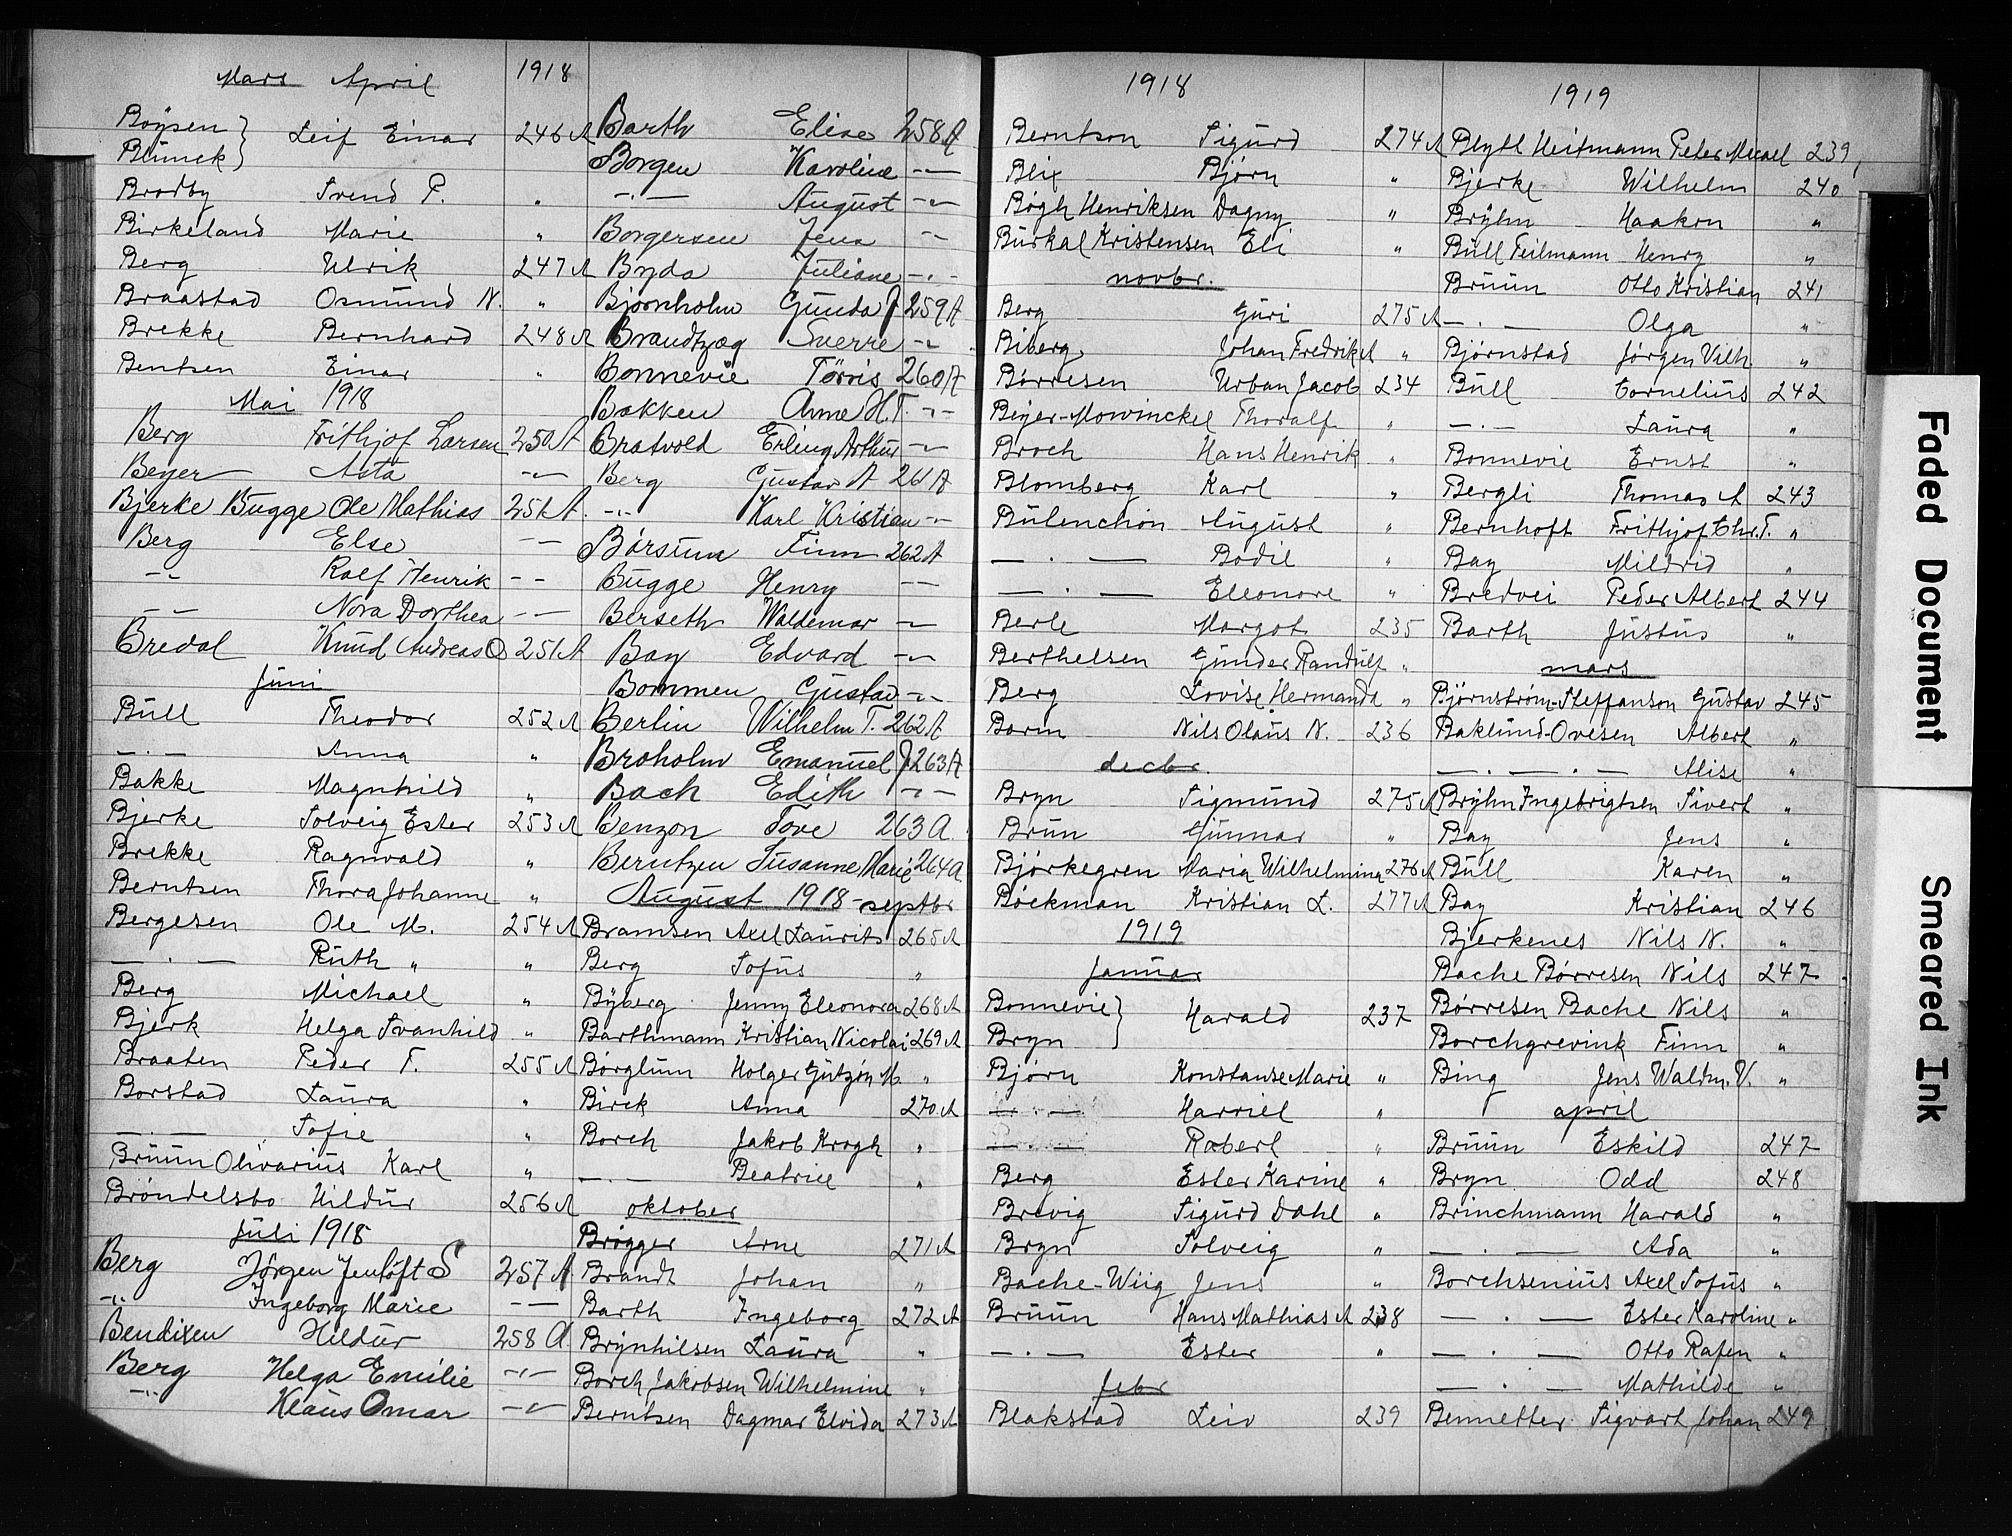 Mars April 1918
Böysen } Leif Einar 246 A
Blunck }
Brodby Svend P. "
Birkeland Marie "
Berg Ulrik 247 A
Braastad Osmund N. "
Brekke Bernhard 248 A
Bentsen Einar "
Mai 1918
Berg Frithjof Larsen 250 A
Beyer Asta -"-
Bjerke Bugge Ole Mathias 251 A.
Berg Else - -
-"- Rolf Henrik - -
- - Nora Dorthea - -
Bredal Knud Andreas O 251 A
Juni
Bull Theodor 252 A
— . — Anna "
Bakke Magnhild "
Bjerke Solveig Ester 253 A
Brekke Ragnvald "
Berntsen Thora Johanne "
Bergesen Ole M. 254 A
— . — Ruth " "
Berg Michael "
Bjerk Helga Svanhild "
Braaten Peder T. 255 A
Borstad Laura "
— . — Sofie "
Bruun Olivarius Karl "
Bröndelsbo Hildur 256 A
Juli 1918
Berg Jörgen Jentoft S 257 A
-"- Ingeborg Marie - -
Bendixen Hildur 258 A
Berg Helga Emilie -"-
-"- Klaus Omar -"-
Barth Elise 258 A
Borgen Karoline -"-
— . — August -"-
Borgersen Jens -"-
Bryda Juliane -"-
Bjørnholm Gunda J 259 A
Brandtzæg Sverre -"-
Bonnevie Törris 260 A
Bakken Arne H.T. -"-
Bratvold Erling Arthur -"-
Berg Gustav A 261 A
-"- Karl Kristian -"-
Børsum Finn 262 A
Bugge Henry - -
Berseth Waldemar -
Bay Edvard -"-
Bommen Gustav -"-
Berlin Wilhelm T. 262 A
Broholm Emanuel J 263 A
Bach Edith -"-
Benzon Tove 263 A.
Berntzen Susanne Marie 264 A
August 1918 - septbr
Bramsen Axel Laurits 265 A
Berg Sofus "
Byberg Jenny Eleonora 268 A
Barthmann Kristian Nicolai 269 A
Børglum Holger Gutzon M. "
Birck Anna 270 A
Borch Jakob Krogh "
— . — Beatrice "
oktober
Brøgger Arne 271 A
Brandt Johan "
Barth Ingeborg 272 A
Brynhilsen Laura "
Borch Jakobsen Wilhelmine "
Berntsen Dagmar Elvida 273 A
1918
Berntson Sigurd 274 A
Blix Bjørn "
Bøgh Henriksen Dagny "
Burkal Kristensen Eli "
novbr.
Berg Guri 275 A
Biberg Johan Fredrik A "
Børresen Urban Jacob 234
Beyer-Mowinckel Thoralf "
Broch Hans Henrik "
Blomberg Karl "
Bulenchon August "
— . — Bodil "
— . — Eleonore "
Berle Margot 235
Berthelsen Gunder Randulf "
Berg Lovise Hermande "
Borm Nils Olaus N. 236
decbr.
Bryn Sigmund 275 A
Brun Gunnar "
Bjørkegren Maria Wilhelmina 276 A
Bøckman Kristian L. 277 A
1919
Januar
Bonnevie } Harald 237
Bryn }
Bjørn Konstanse Marie "
— . — Harriet "
— . — Robert "
Berg Ester Karine "
Brevig Sigurd Dahl "
Bryn Solveig "
Bache-Wiig Jens "
Bruun Hans Mathias A 238
— . — Ester "
febr
Blakstad Leiv 239
1919
Blytt Heitmann Peter Micael 239,
Bjerke Wilhelm 240
Bryhn Haakon "
Bull Teilmann Henry "
Bruun Otto Kristian 241
— . — Olga "
Bjørnstad Jørgen Vilh. "
Bull Cornelius 242
— . — Laura "
Bonnevie Ernst "
Bergli Thomas A 243
Bernhoft Frithjof Chr. T. "
Bay Mildrid "
Bredvei Peder Albert 244
Barth Justus "
mars
Bjørnstrøm-Steffanson Gustav 245
Baklund-Ovesen Albert "
— . — . — Alise "
Bryhn Ingebrigtsen Sivert "
Bay Jens "
Bull Karen "
Bay Kristian 246
Bjerkenes Nils N. "
Bache Børresen Nils 247
Børresen Bache Nils "
Borchgrevink Finn "
Bing Jens Waldm. V. "
april
Bruun Eskild 247
Bryn Odd 248
Brinchmann Harald "
— . — Ada "
Borchsenius Axel Sofus "
— . — Ester Karoline "
— . — Otto Rafen "
— . — Mathilde "
Bennetter Sigvart Johan 249
Faded Document
Smeared Ink